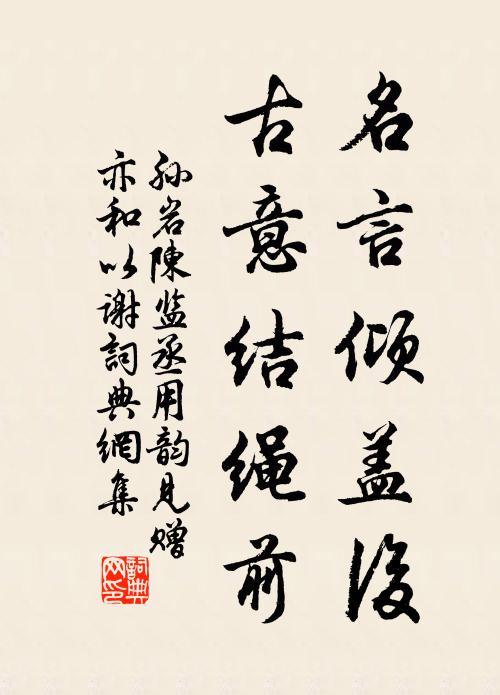 名言倾盖後
古意结绳前
孙岩陳监丞用韵見赠
亦和以谢詞典網集
詞典
网印